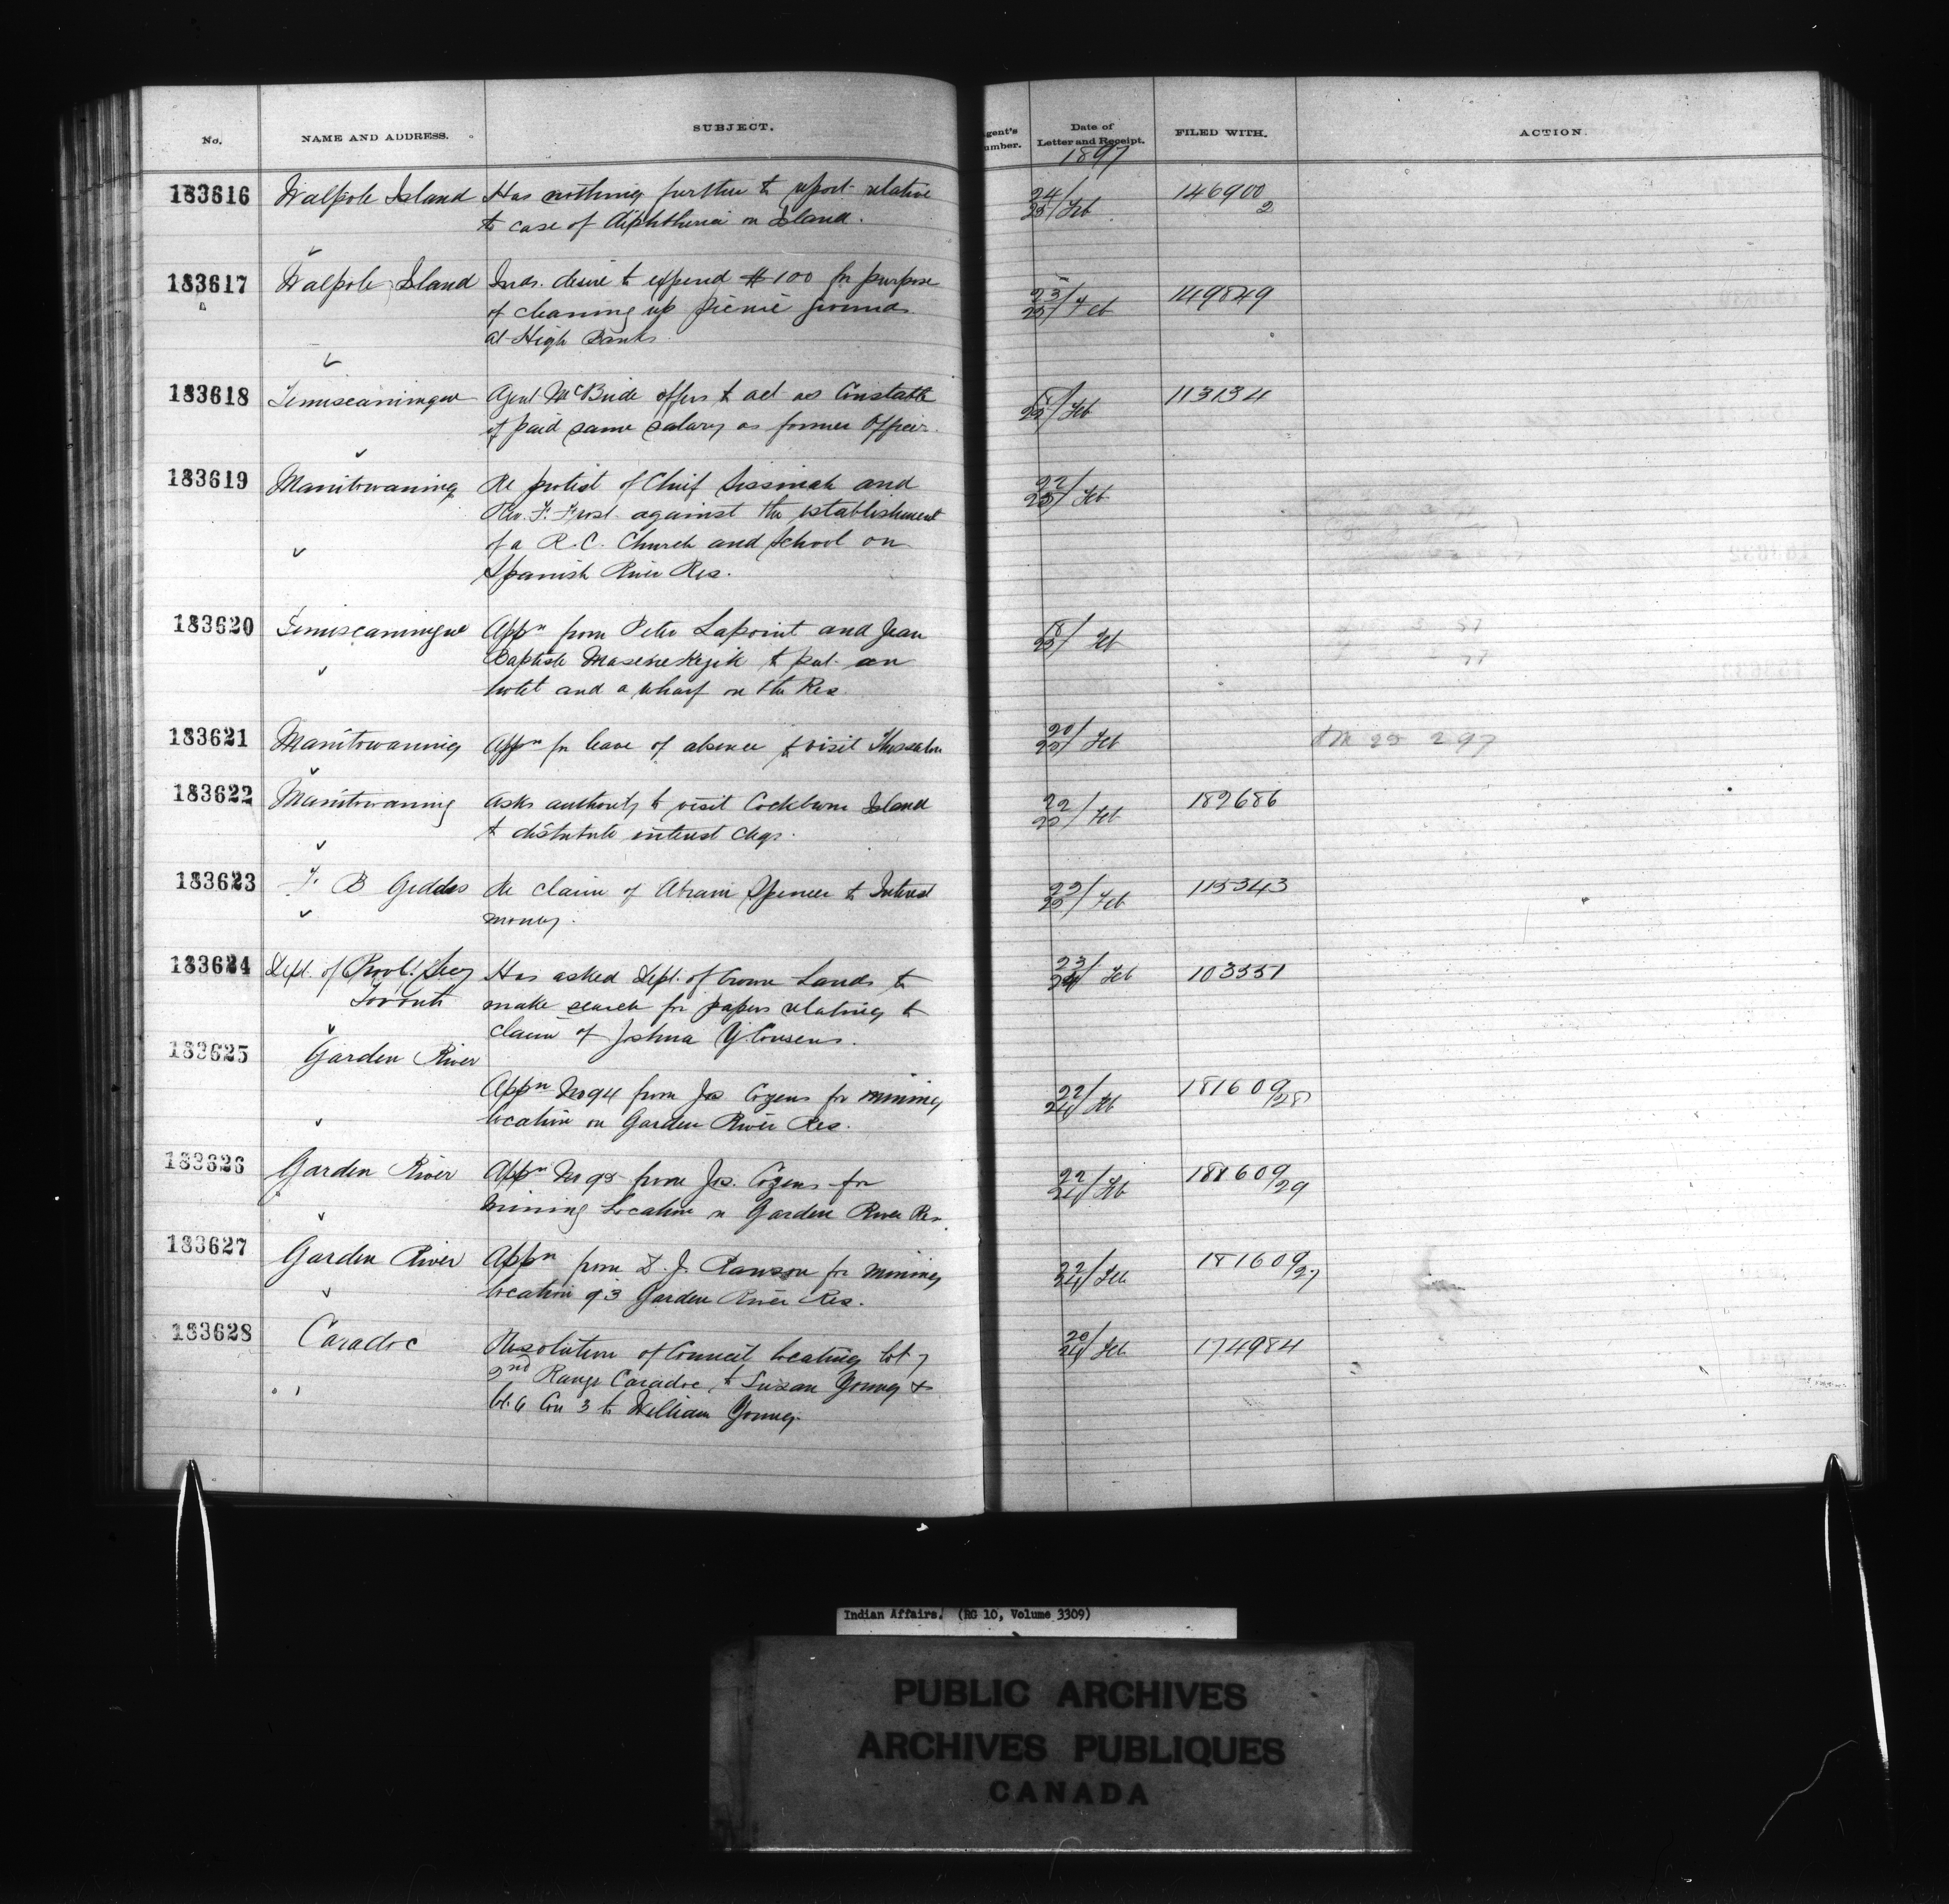 No. NAME AND ADDRESS. SUBJECT. Agent's Number. Date of Letter and Receipt. FILED WITH. ACTION.
1897
183616 Walpole Island Has nothing further to report relative 24/25/Feb 146900/2
to case of diphtheria on Island.
183617 Walpole Island Inds. desire to expend $100 for purpose 23/25/Feb 149849
of cleaning up picnic grounds
at High Banks
183618 Temiscamingue Agent McBride offers to act as Constable 18/25/Feb 113134
if paid same salary as former Officer.
183619 Manitowaning Re protest of Chief and 22/25/Feb
Rev. F. Frost against the establishment
of a R.C. Church and School on
Spanish River Res.
183620 Temiscamingue Appn from Peter Lapoint and Jean 18/25/Feb
Baptiste to put an
hotel and a wharf on the Res.
183621 Manitowaning Appn for leave of absence to visit Thessalon 20/25/Feb 25 2 97
183622 Manitowaning Asks authority to visit Cockburn Island 22/25/Feb 182686
to distribute interest chqs.
183623 F. B Geddes Re claim of Abram Spencer to Interest 22/25/Feb 115343
money.
183624 Dept. of Provl. Secy Has asked Dept. of Crown Lands to 23/24 Feb 103551
Toronto make search for papers relating to
claim of Joshua Y. Cousens.
183625 Garden River
Appn No 94 from Jos. Cozens for mining 22/24/Feb 181609/28
location on Garden River Res.
183626 Garden River Appn No 95 from Jos. Cozens for 22/24/Feb 181609/29
Mining Location on Garden River Res.
183627 Garden River Appn from D. J. Rawson for mining 22/24/Feb 181609/27
location 93 Garden River Res.
183628 Caradoc Resolution of Council locating lot 7 20/24/Feb 174984
2nd Range Caradoc, to Susan Young &
lot 6 Con 3 to William Young.
Indian Affairs. (RG 10, Volume 3309)
PUBLIC ARCHIVES
ARCHIVES PUBLIQUES
CANADA